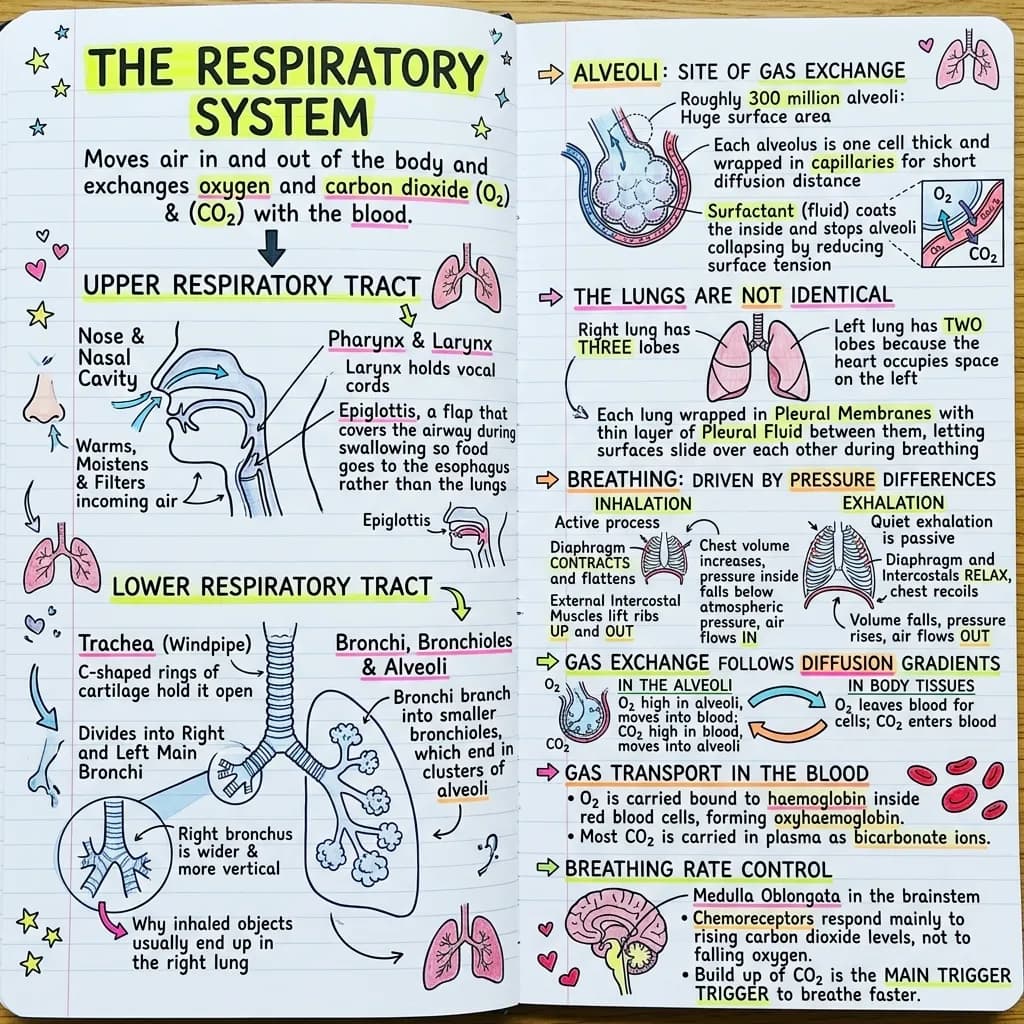 THE RESPIRATORY
SYSTEM
Moves air in and out of the body and
exchanges oxygen and carbon dioxide (O₂)
& (CO₂) with the blood.
UPPER RESPIRATORY TRACT
Nose &
Nasal
Cavity
Warms,
Moistens
& Filters
incoming air
Pharynx & Larynx
Larynx holds vocal
cords
Epiglottis, a flap that
covers the airway during
swallowing so food
goes to the esophagus
rather than the lungs
Epiglottis
LOWER RESPIRATORY TRACT
Trachea (Windpipe)
C-shaped rings of
cartilage hold it open
Divides into Right
and Left Main
Bronchi
Right bronchus
is wider &
more vertical
Why inhaled objects
usually end up in
the right lung
Bronchi, Bronchioles
& Alveoli
Bronchi branch
into smaller
bronchioles,
which end in
clusters of
alveoli
ALVEOLI: SITE OF GAS EXCHANGE
Roughly 300 million alveoli:
Huge surface area
Each alveolus is one cell thick and
wrapped in capillaries for short
diffusion distance
Surfactant (fluid) coats
the inside and stops alveoli
collapsing by reducing
surface tension
O₂
CO₂
THE LUNGS ARE NOT IDENTICAL
Right lung has
THREE lobes
Left lung has TWO
lobes because the
heart occupies space
on the left
Each lung wrapped in Pleural Membranes with
thin layer of Pleural Fluid between them, letting
surfaces slide over each other during breathing
BREATHING: DRIVEN BY PRESSURE DIFFERENCES
INHALATION
Active process
Diaphragm
CONTRACTS
and flattens
External Intercostal
Muscles lift ribs
UP and OUT
Chest volume
increases,
pressure inside
falls below
atmospheric
pressure, air
flows IN
EXHALATION
Quiet exhalation
is passive
Diaphragm and
Intercostals RELAX,
chest recoils
Volume falls, pressure
rises, air flows OUT
GAS EXCHANGE FOLLOWS DIFFUSION GRADIENTS
O₂
CO₂
IN THE ALVEOLI
O₂ high in alveoli,
moves into blood;
CO₂ high in blood,
moves into alveoli
IN BODY TISSUES
O₂ leaves blood for
cells; CO₂ enters blood
GAS TRANSPORT IN THE BLOOD
• O₂ is carried bound to haemoglobin inside
red blood cells, forming oxyhaemoglobin.
• Most CO₂ is carried in plasma as bicarbonate ions.
BREATHING RATE CONTROL
Medulla Oblongata in the brainstem
• Chemoreceptors respond mainly to
rising carbon dioxide levels, not to
falling oxygen.
• Build up of CO₂ is the MAIN TRIGGER
TRIGGER to breathe faster.